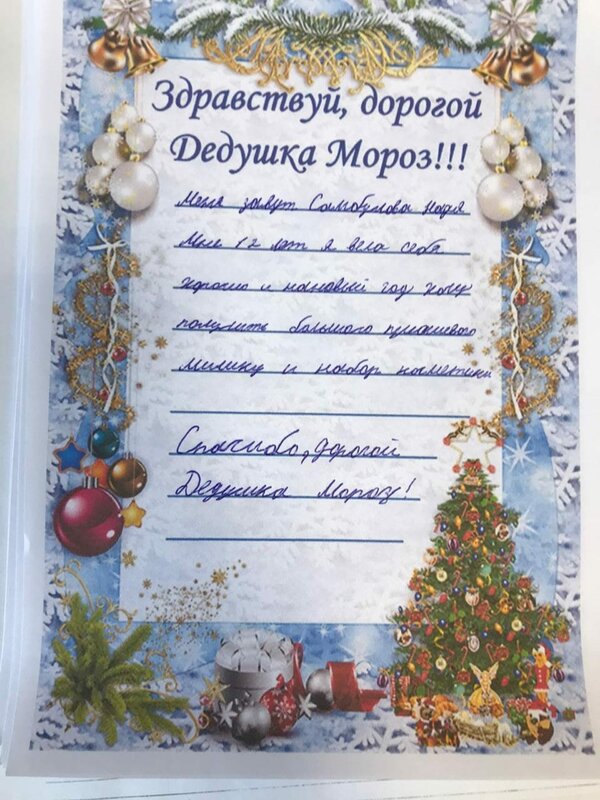 Здравствуй, дорогой
Дедушка Мороз!!!
Меня завут Надя
Мне 12 лет я вела себя
хорошо и нановый год хочу
получить большого плюшевого
мишку и набор косметики
Спасибо, дорогой
Дедушка Мороз!